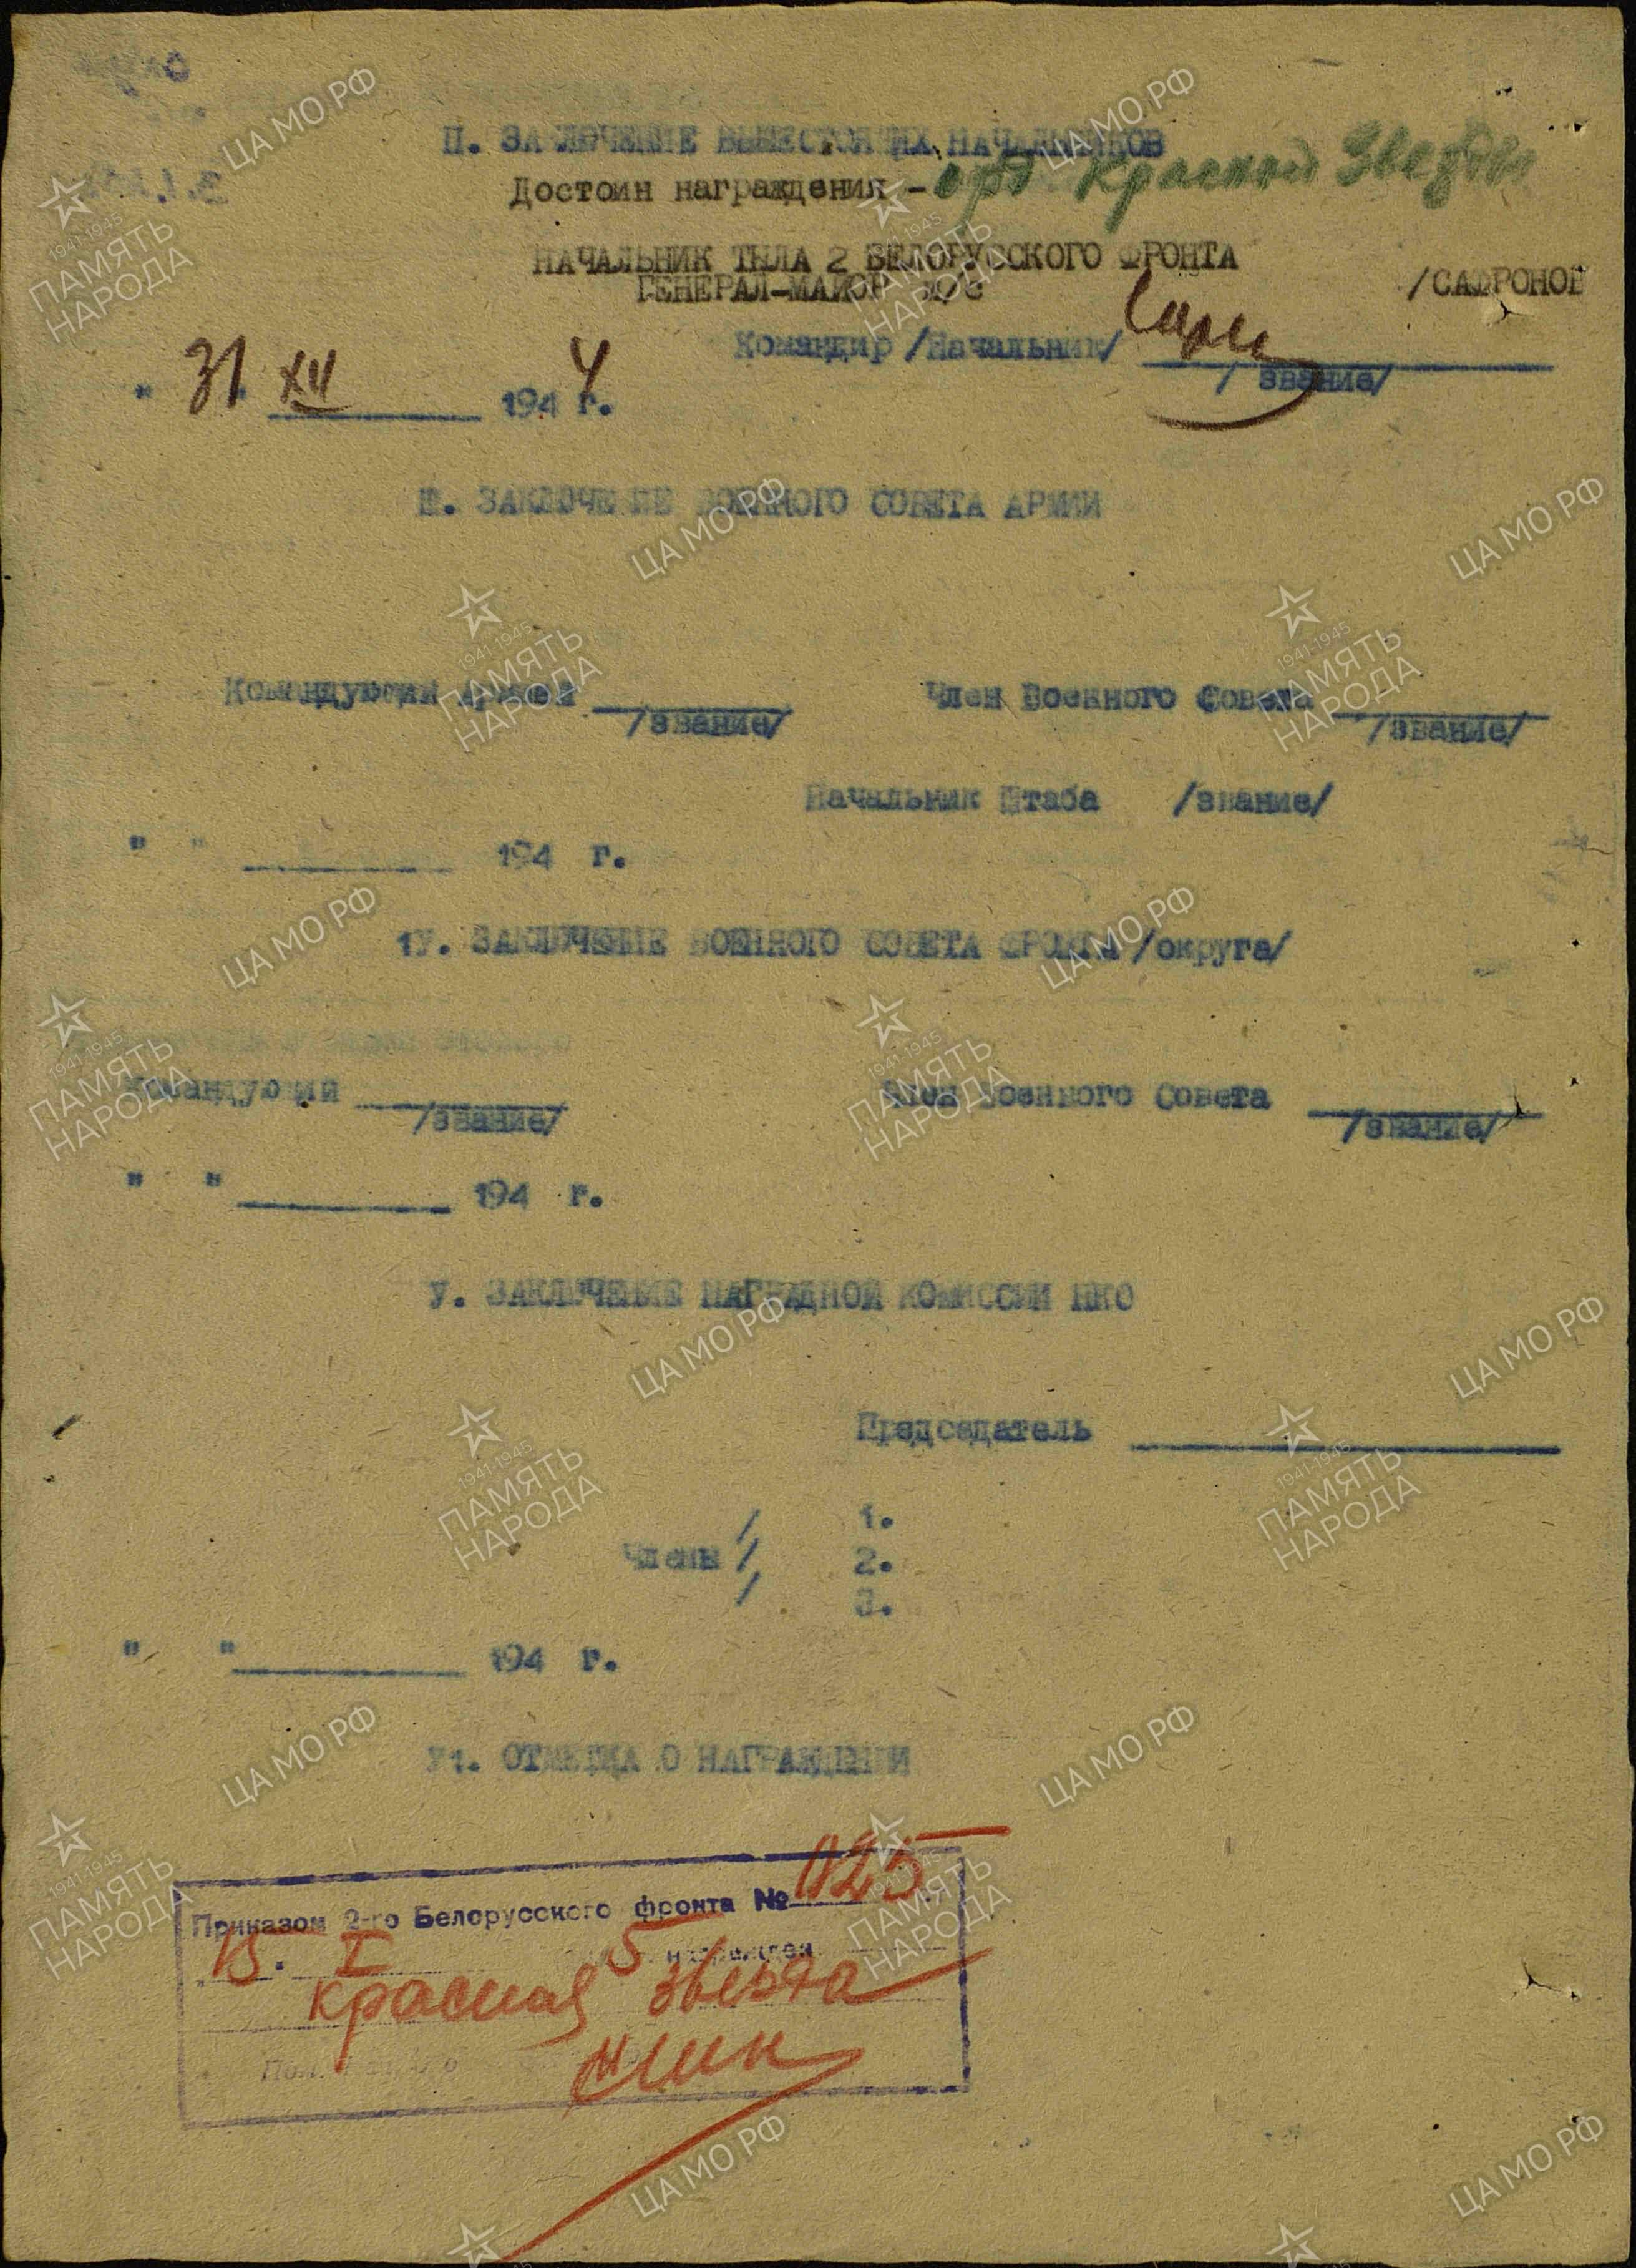 П. ЗАКЛЮЧЕНИЕ ВЫШЕСТОЯЩИХ НАЧАЛЬНИКОВ
Достоин награждения - орд Красной Звезды
НАЧАЛЬНИК ТЫЛА 2 БЕЛОРУССКОГО ФРОНТА
ГЕНЕРАЛ-МАЙОР И/С /САФРОНОВ
Командир /Начальник/
/ звание/
" 31 " XII 1944 г.
Ш. ЗАКЛЮЧЕНИЕ ВОЕННОГО СОВЕТА АРМИИ
Командующий Армией Член Военного Совета
/звание/ /звание/
Начальник Штаба /звание/
" " 194 г.
1У. ЗАКЛЮЧЕНИЕ ВОЕННОГО СОВЕТА ФРОНТА /округа/
Командующий Член Военного Совета
/звание/ /звание/
" " 194 г.
У. ЗАКЛЮЧЕНИЕ НАГРАДНОЙ КОМИССИИ НКО
Председатель
/ 1.
Члены / 2.
/ 3.
" " 194 г.
У1. ОТМЕТКА О НАГРАЖДЕНИИ
Приказом 2-го Белорусского фронта № 025
15. I 5 награжден
Красная звезда
ЦА МО РФ
1941-1945
ПАМЯТЬ
НАРОДА